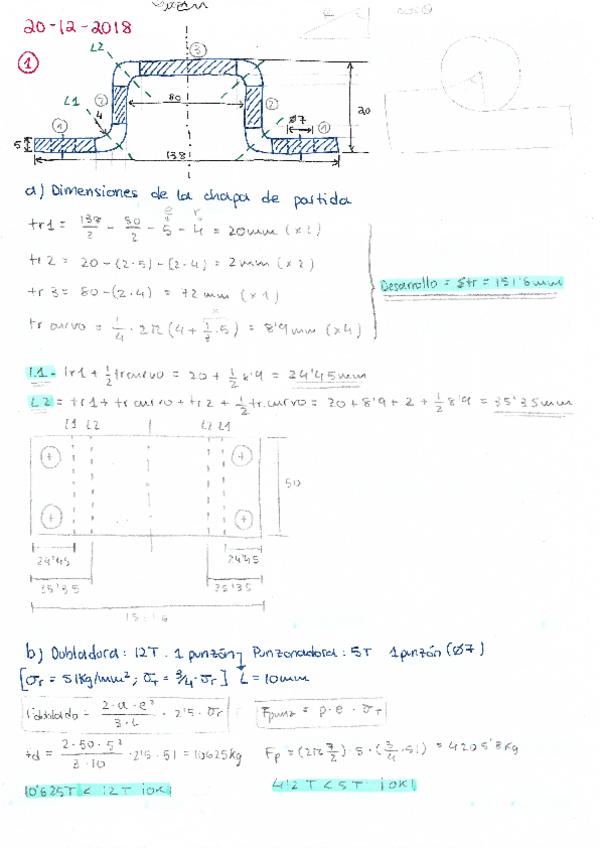 Examen
20-12-2018
cos θ
①
L2
③
②
80
②
L1
4
①
Ø7
①
20
5
138
a) Dimensiones de la chapa de partida
tr1 = 138/2 - 80/2 - 5 - 4 = 20mm (x2)
tr2 = 20 - (2·5) - (2·4) = 2mm (x2)
tr3 = 80 - (2·4) = 72mm (x1)
tr curvo = 1/4 · 2π(4 + 1/3 · 5) = 8'9mm (x4)
Desarrollo = Σtr = 151'6mm
L1 = tr1 + 1/2 tr curvo = 20 + 1/2 8'9 = 24'45mm
L2 = tr1 + tr curvo + tr2 + 1/2 tr.curvo = 20 + 8'9 + 2 + 1/2 8'9 = 35'35mm
L1 L2 L2 L1
50
24'45 24'45
35'35 35'35
151'6
b) Dobladora: 12T. 1 punzón y Punzonadora: 5T 1 punzón (Ø7)
[σr = 51kg/mm²; σT = 3/4 · σr] L = 10mm
Fdoblado = 2·a·e²/3·L · 2'5·σr Fpunz = p·e·σT
Fd = 2·50·5²/3·10 · 2'5·51 = 10625kg Fp = (2π 7/2) · 5 · (3/4 · 51) = 4205'8kg
10'625T < 12T ¡OK! 4'2T < 5T ¡OK!